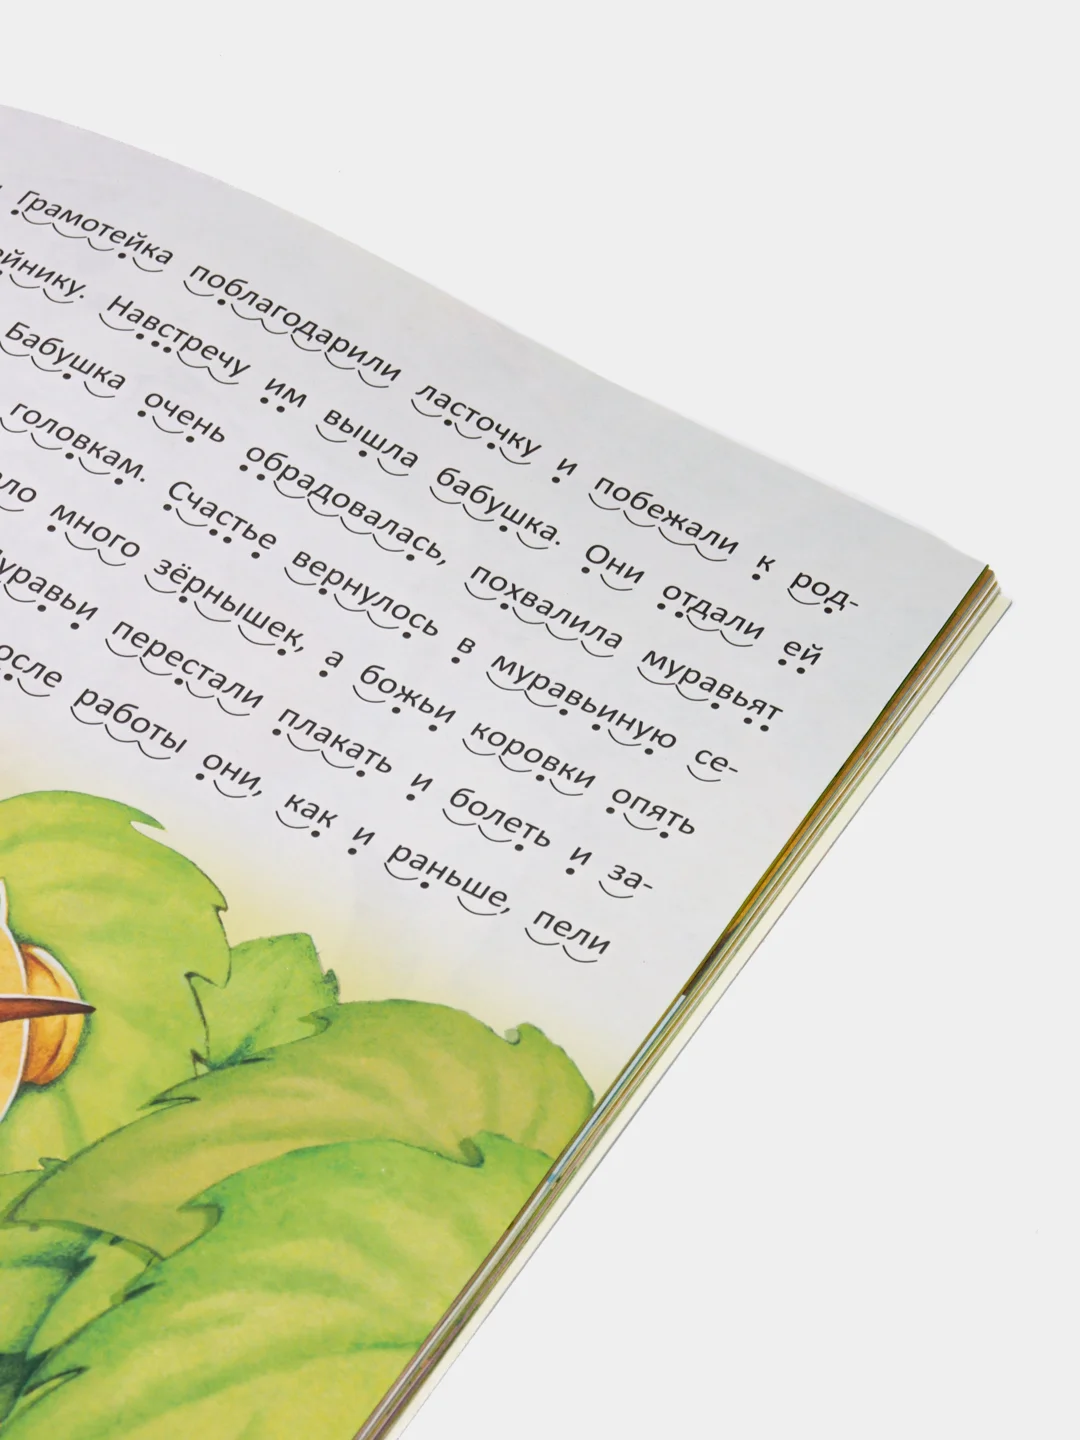 Грамотейка поблагодарили ласточку и побежали к род-
йнику. Навстречу им вышла бабушка. Они отдали ей
Бабушка очень обрадовалась, похвалила муравьят
головкам. Счастье вернулось в муравьиную се-
ло много зёрнышек, а божьи коровки опять
уравьи перестали плакать и болеть и за-
осле работы они, как и раньше, пели